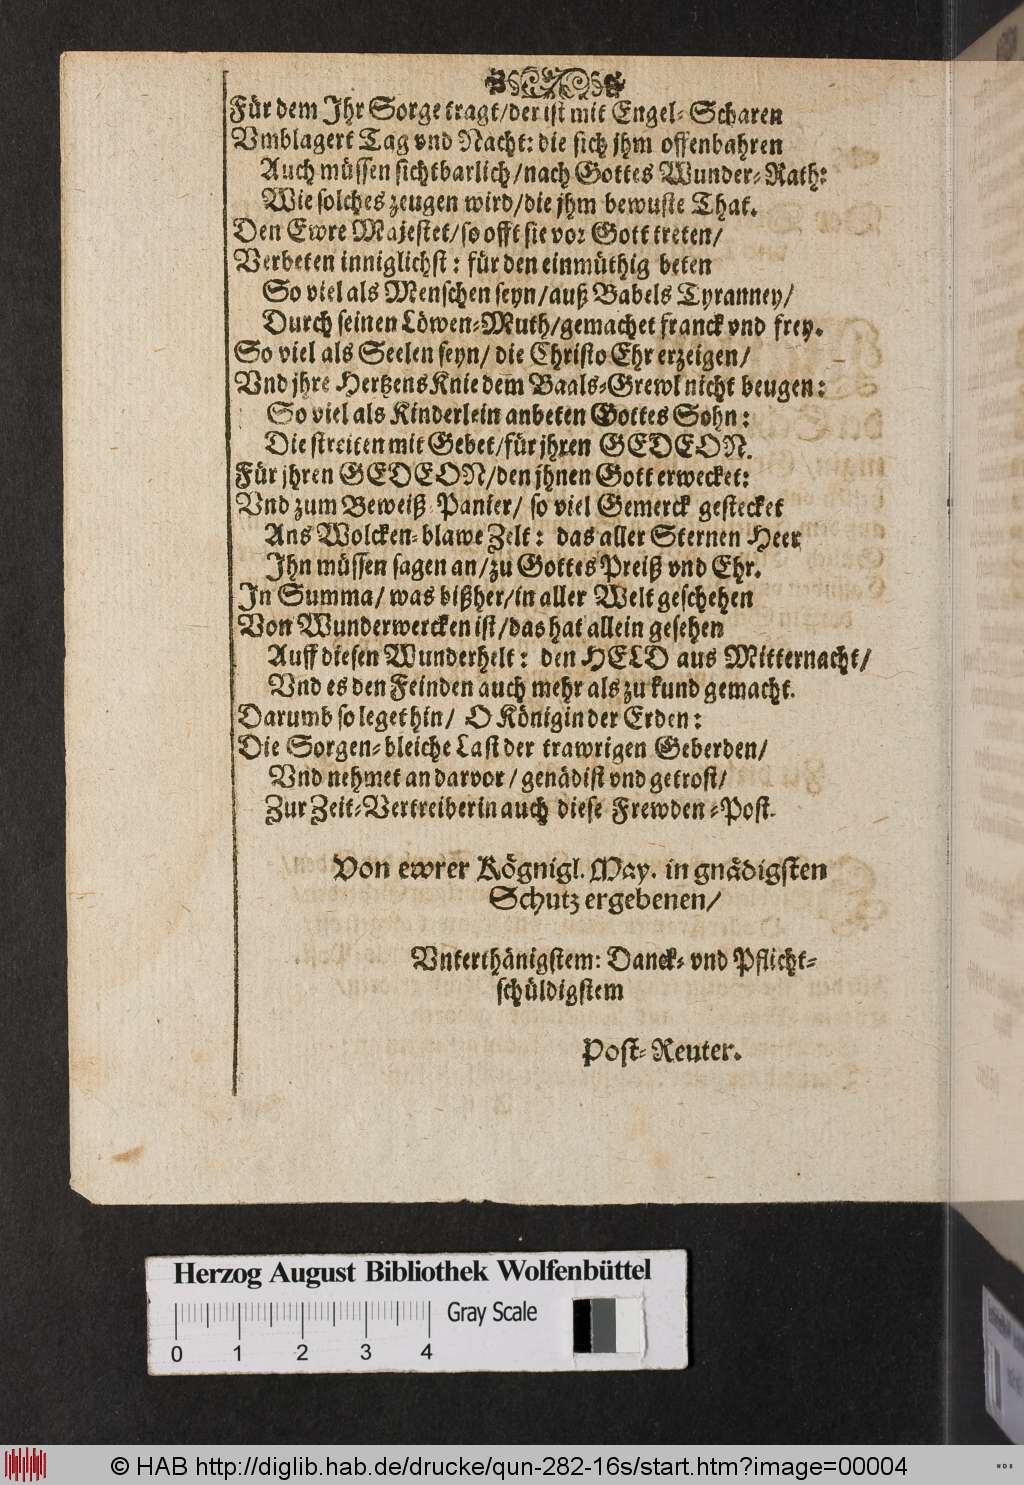 Für dem Ihr Sorge tragt/ der ist mit Engel-Scharen
Vmblagert Tag vnd Nacht: die sich jhm offenbahren
Auch müssen sichtbarlich/ nach Gottes Wunder-Rath:
Wie solches zeugen wird/ die jhm bewuste That.
Den Ewre Majestet/ so offt sie vor Gott treten/
Verbeten inniglichst: für den einmüthig beten
So viel als Menschen seyn/ auß Babels Tyranney/
Durch seinen Löwen-Muth/ gemachet franck vnd frey.
So viel als Seelen seyn/ die Christo Ehr erzeigen/
Vnd jhre Hertzens Knie dem Baals-Grewl nicht beugen:
So viel als Kinderlein anbeten Gottes Sohn:
Die streiten mit Gebet/ für jhren GEDEON.
Für jhren GEDEON/ den jhnen Gott erwecket:
Vnd zum Beweiß Panier/ so viel Gemerck gestecket
Ans Wolcken-blawe Zelt: das aller Sternen Heer
Ihn müssen sagen an/ zu Gottes Preiß vnd Ehr.
In Summa/ was bißher/ in aller Welt geschehen
Von Wunderwercken ist/ das hat allein gesehen
Auff diesen Wunderhelt: den HELD aus Mitternacht/
Vnd es den Feinden auch mehr als zu kund gemacht.
Darumb so leget hin/ O Königin der Erden:
Die Sorgen-bleiche Last der trawrigen Geberden/
Vnd nehmet an darvor/ genädist vnd getrost/
Zur Zeit-Vertreiberin auch diese Frewden-Post.
Von ewrer Kögnigl. May. in gnädigsten
Schutz ergebenen/
Vnterthänigstem: Danck- vnd Pflicht-
schüldigstem
Post-Reuter.
Herzog August Bibliothek Wolfenbüttel
Gray Scale
0 1 2 3 4
© HAB http://diglib.hab.de/drucke/qun-282-16s/start.htm?image=00004